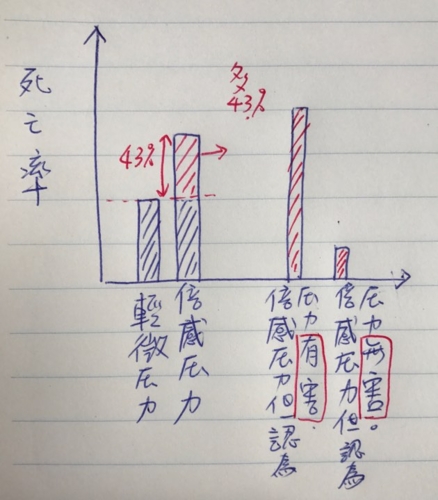 死亡率
43%
多
43%
輕微压力
倍感压力
倍感压力但認為
压力有害.
倍感压力但認為
压力無害。